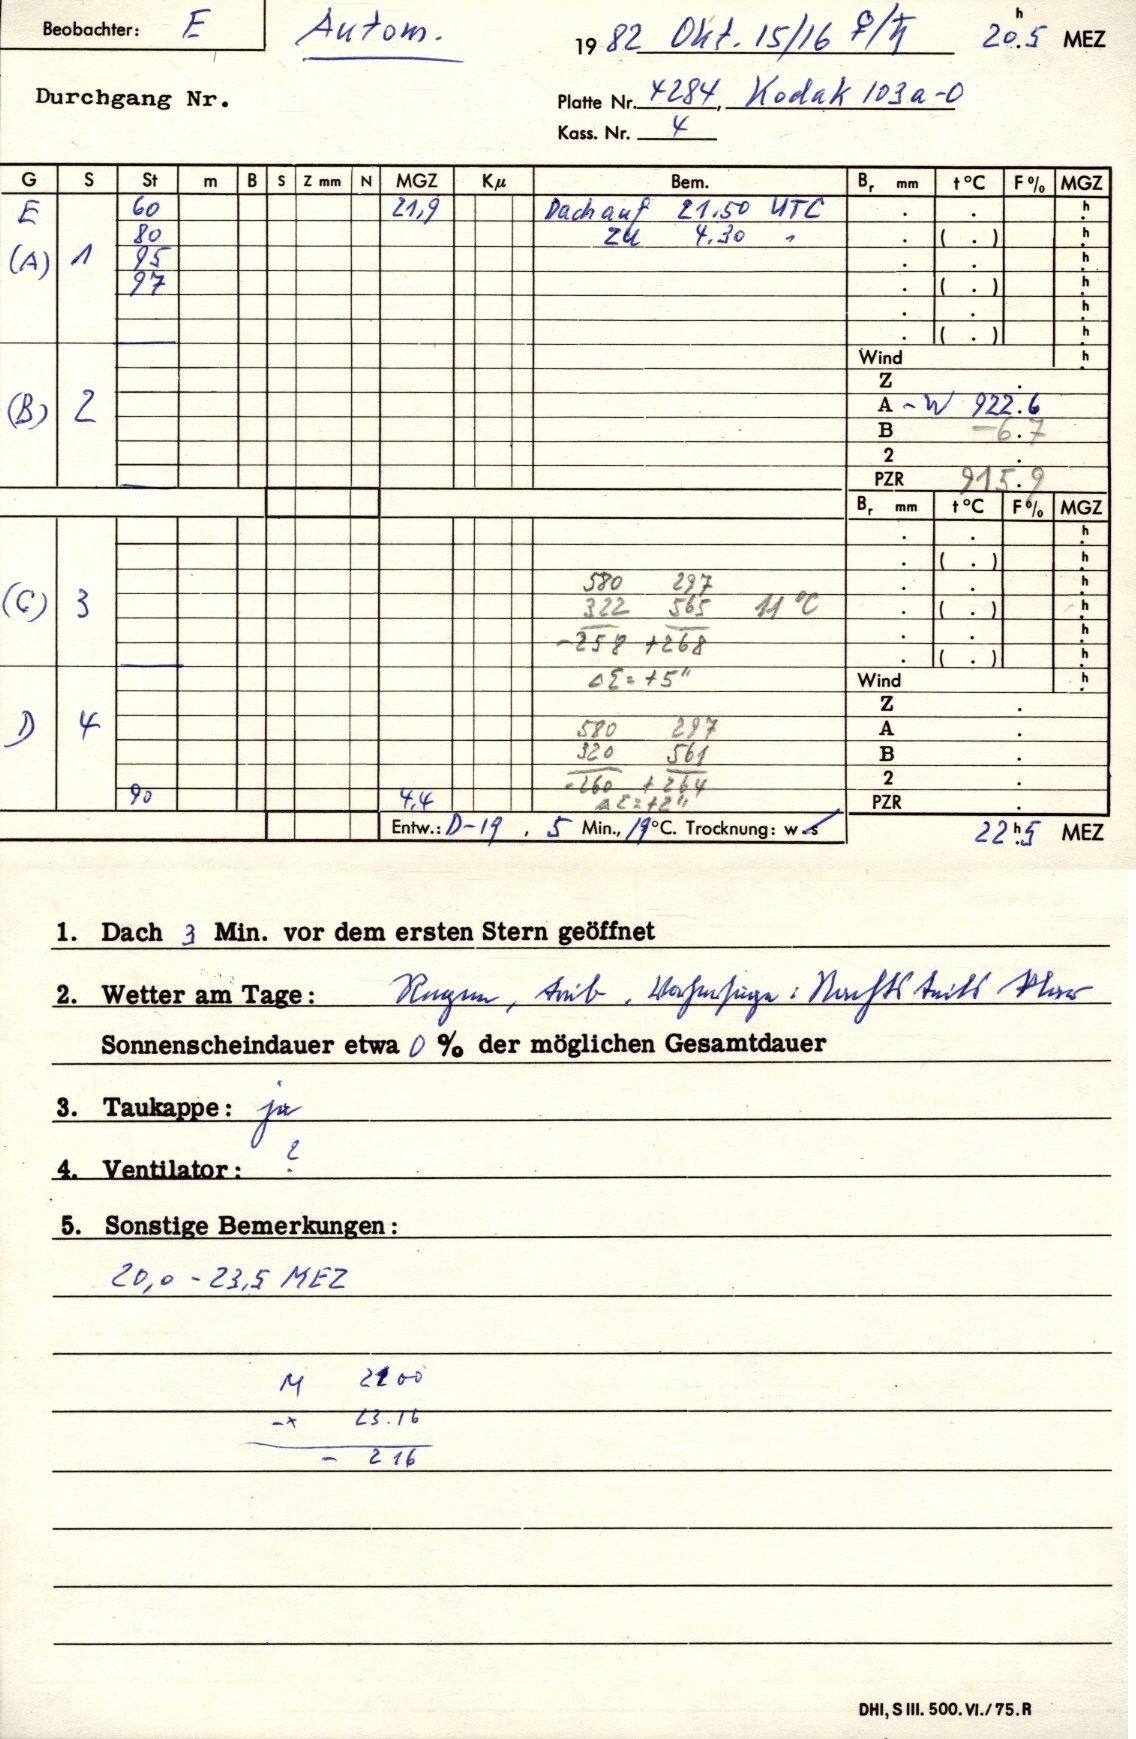 Beobachter: E Autom. 1982 Okt. 15/16 ♀/♄ 20.5 h MEZ
Durchgang Nr. Platte Nr. 4284, Kodak 103a-O
Kass. Nr. 4
G S St m B S Z mm N MGZ Kμ Bem. Br mm t°C F% MGZ
E 60 21,9 Dach auf 21.50 UTC . . h
80 zu 4.30 " . ( . ) h
(A) 1 95 . . h
97 . ( . ) h
. . h
. ( . ) h
Wind h
Z .
(B) 2 A -W 922.6
B -6.7
2 .
PZR 915.9
Br mm t°C F% MGZ
. . h
. ( . ) h
580 297 . . h
(C) 3 322 565 11 °C . ( . ) h
-258 +268 . . h
. ( . ) h
ΔΣ= +5" Wind h
Z .
D 4 580 297 A .
320 561 B .
-260 +264 2 .
90 4,4 ΔΣ=+2" PZR .
Entw.: D-19, 5 Min., 19°C. Trocknung: w s 22.5 h MEZ
1. Dach 3 Min. vor dem ersten Stern geöffnet
2. Wetter am Tage: Regen, trüb. Vorhersage: Nachts teils klar
Sonnenscheindauer etwa 0 % der möglichen Gesamtdauer
3. Taukappe: ja
4. Ventilator: ?
5. Sonstige Bemerkungen:
20,0 - 23,5 MEZ
M 2100
-* 23.16
- 216
DHI, S III. 500. VI./75. R